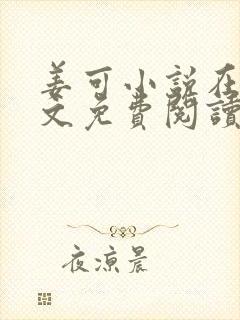 姜可小说在
文免費閱讀
夜涼晨